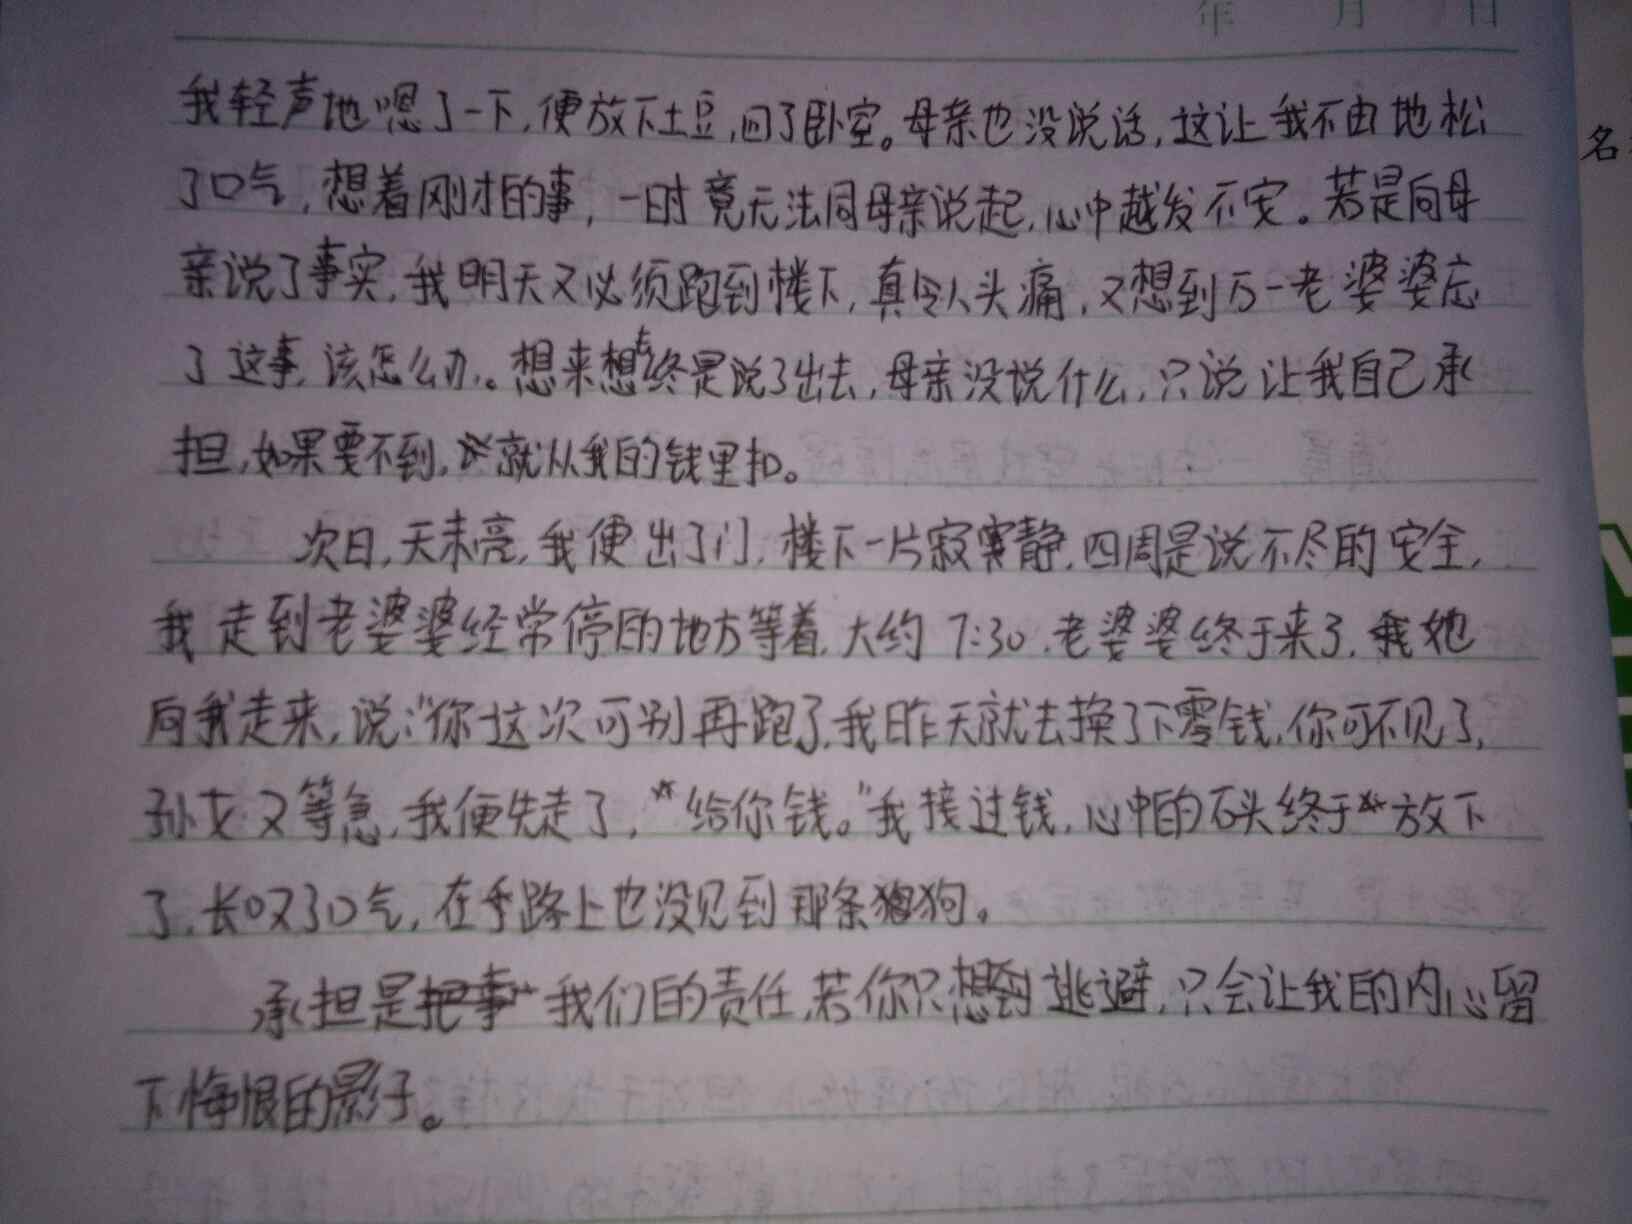 年 月 日
名
我轻声地嗯了一下,便放下土豆,回了卧室。母亲也没说话,这让我不由地松
了口气,想着刚才的事,一时竟无法同母亲说起,心中越发不安。若是向母
亲说了事实,我明天又必须跑到楼下,真令人头痛,又想到万一老婆婆忘
了这事,该怎么办。想来想去终是说了出去,母亲没说什么,只说让我自己承
担,如果要不到,就从我的钱里扣。
次日,天未亮,我便出了门,楼下一片寂静,四周是说不尽的安全,
我走到老婆婆经常停的地方等着,大约7:30,老婆婆终于来了,她
向我走来,说:“你这次可别再跑了,我昨天就去换了下零钱,你可不见了,
孙女又等急,我便先走了,给你钱。”我接过钱,心中的石头终于放下
了,长叹了口气,在手路上也没见到那条狗。
承担是我们的责任,若你只想到逃避,只会让我的内心留
下悔恨的影子。